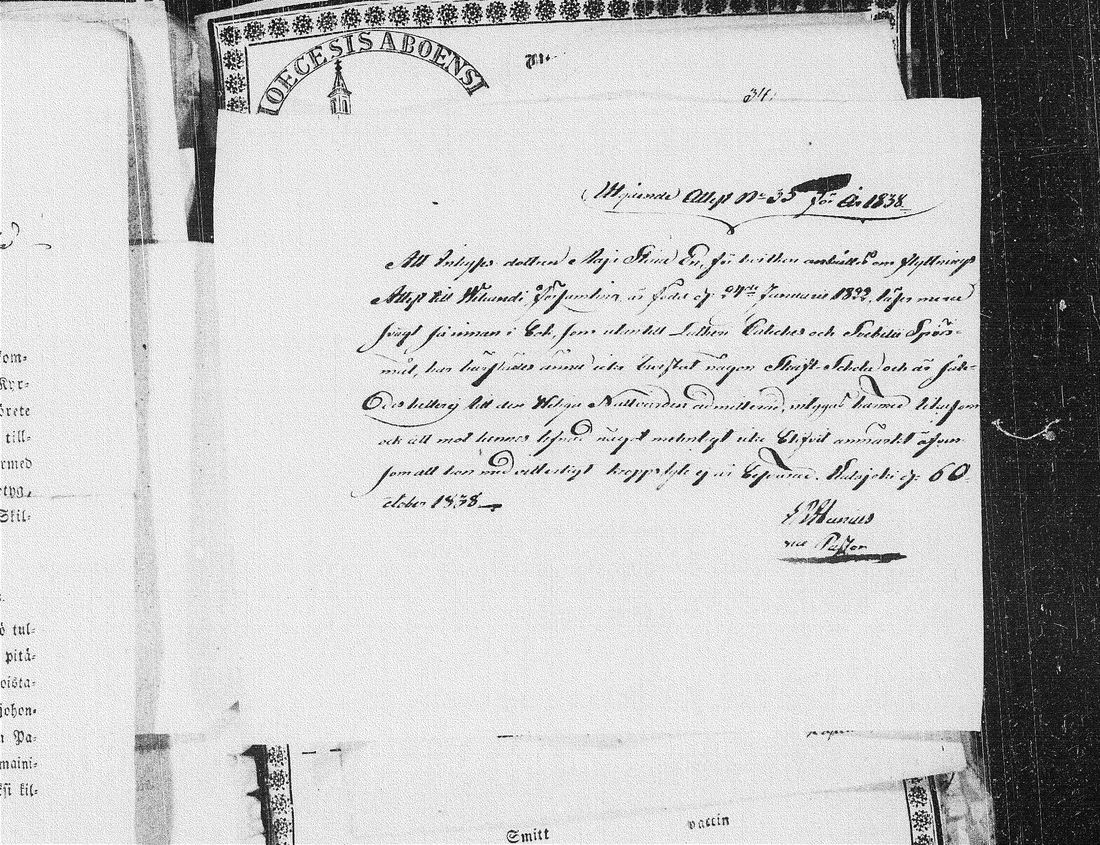 DIOECESIS ABOENSI
34.
Utgående Attest No 35 för År 1838.
Att Inhyses dottren Maja Stina En, för hvilken anhålles om flyttnings
Attest till Församling, är född d. 24de Januarii 1822, läser
svagt så innan i Bok, som utantill Luthers Catches och Svebelii Spörs-
mål, har härstädes ännu icke bevistat någon Skrift-Schola och är såle-
des hel􏰀ler ej till den Heliga Nattvarden admitterad, hvilket
ock att mot hennes lefnad något menligt icke blifvit anmärkt äfven
som att hon med ej är besvärad. d. 6 O-
ctober 1838.
vice Pastor
kom-
Kyr-
örete
till-
rmed
Skil-
ö tul-
pitä-
oista-
johon-
n Pa-
maini-
ksi kil-
Smitt
vaccin